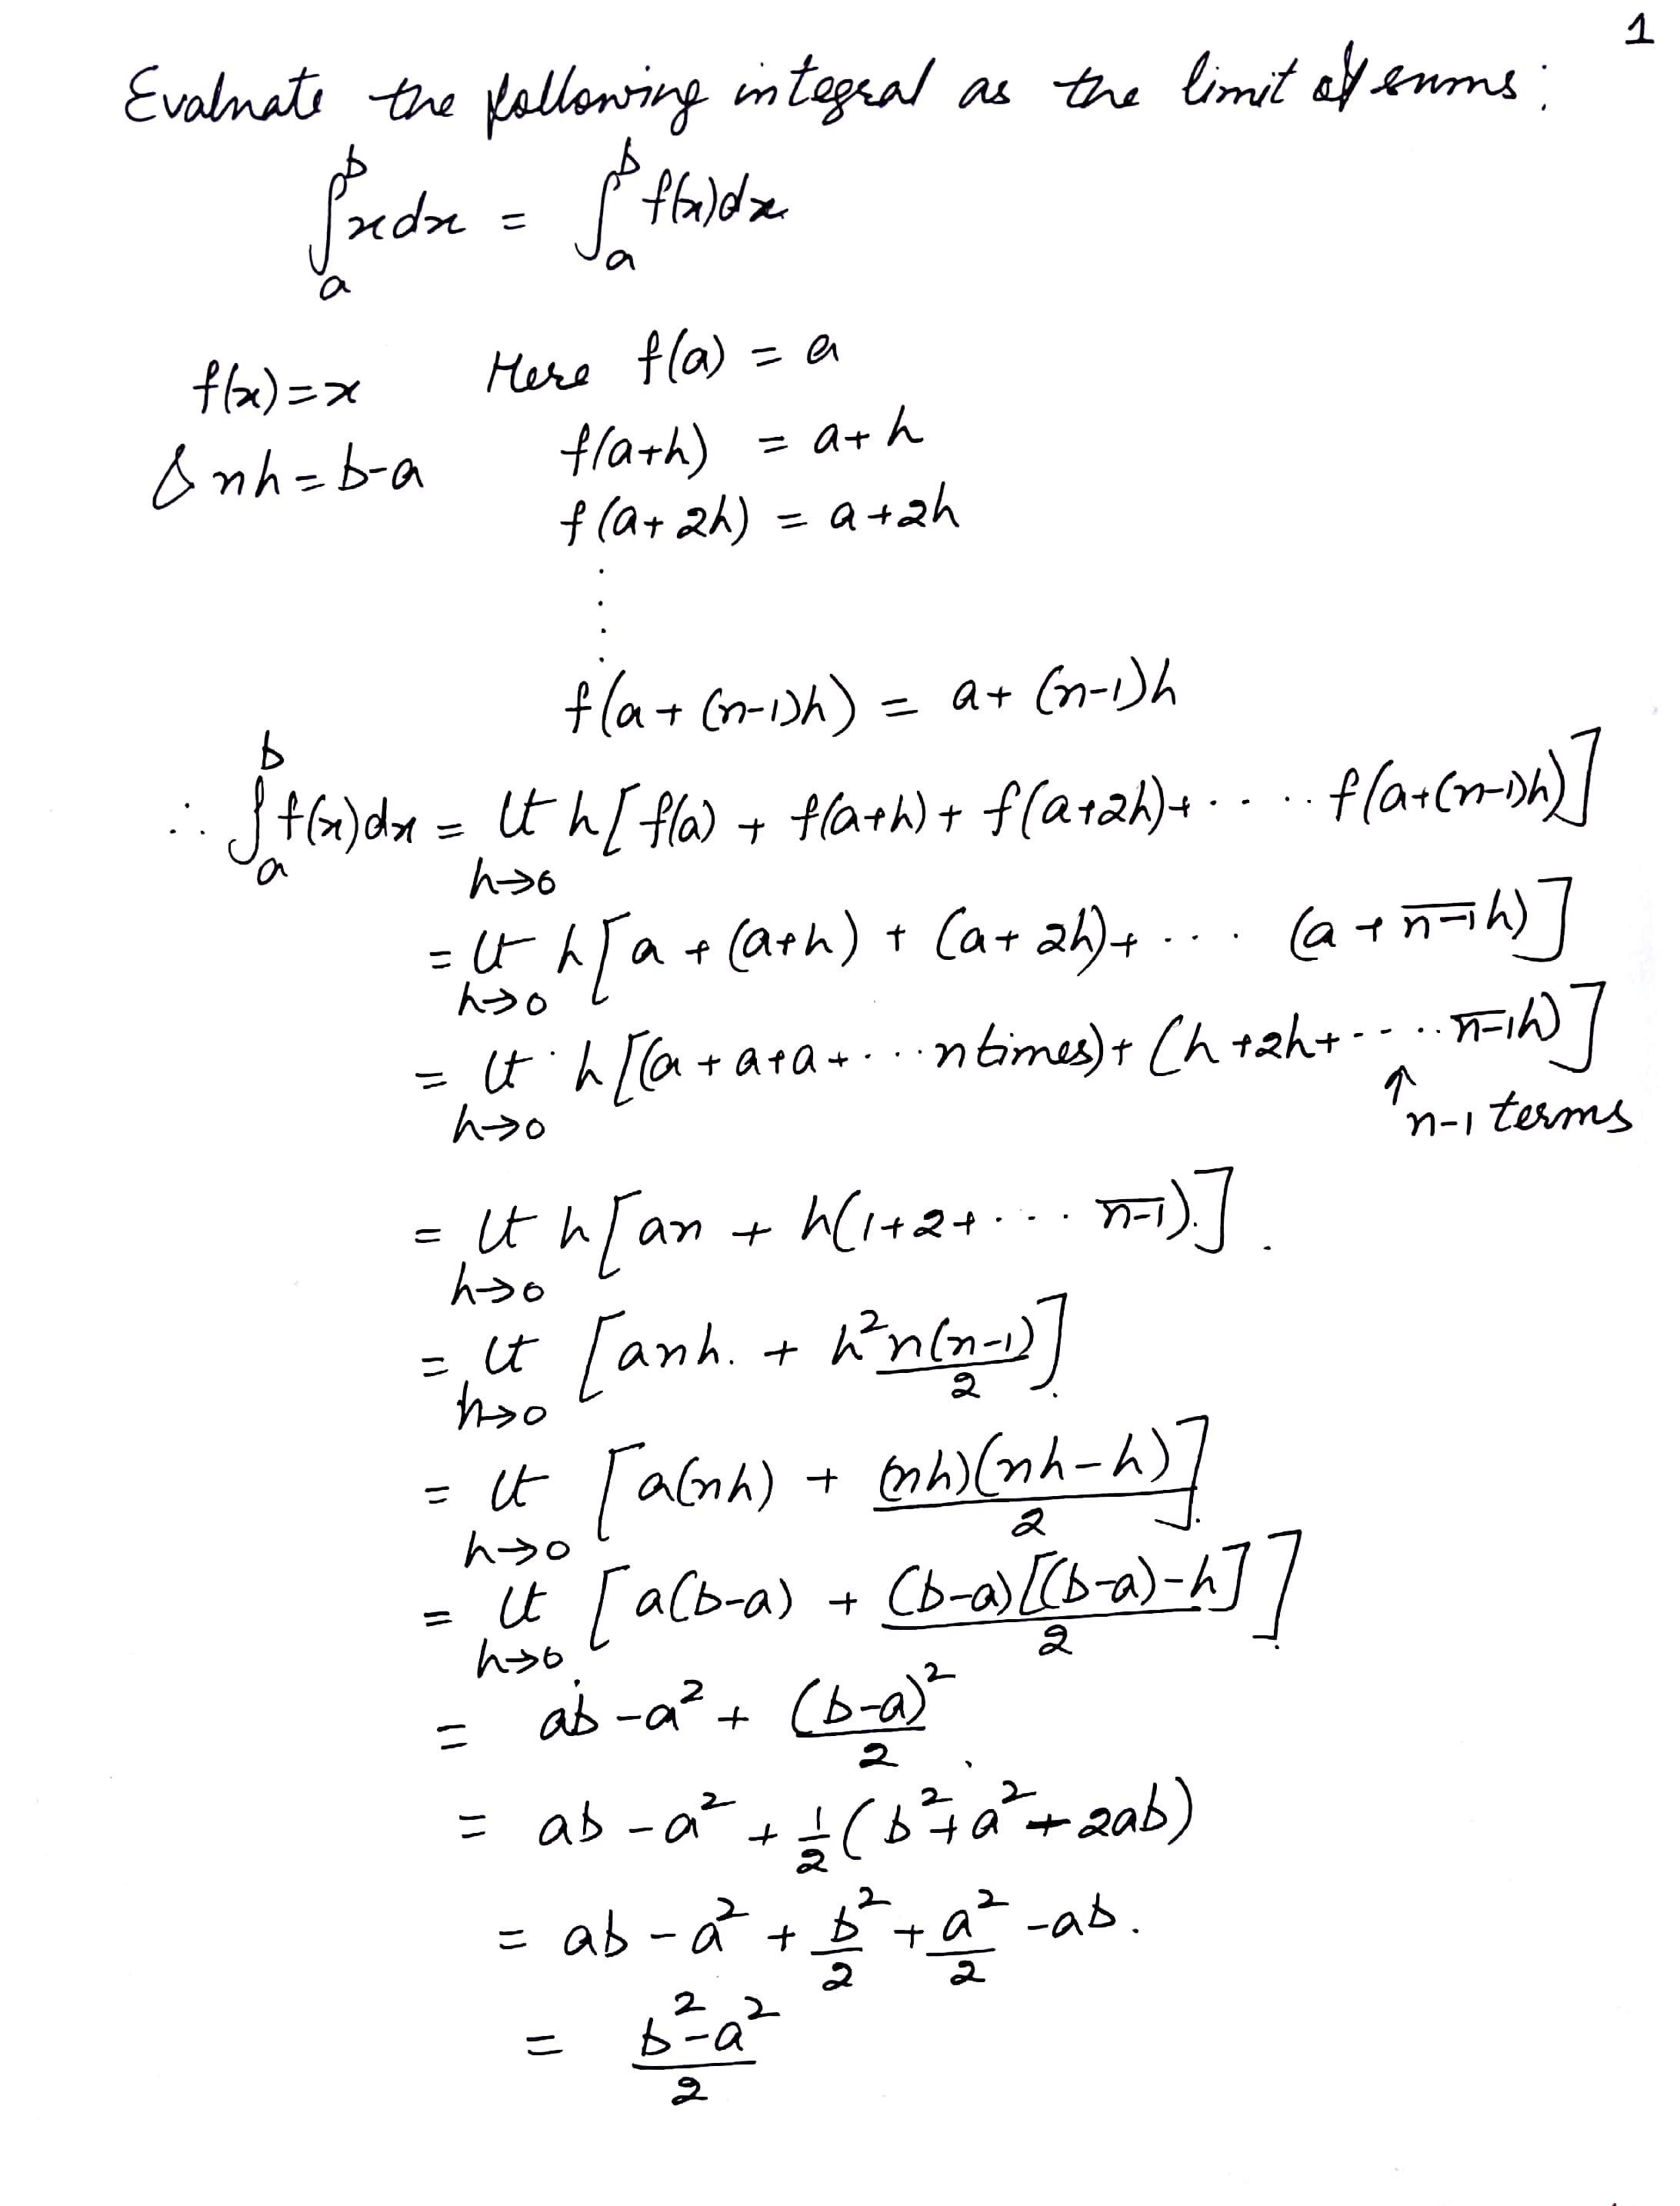 1
Evaluate the following integral as the limit of sums:
∫ₐᵇ x dx = ∫ₐᵇ f(x)dx
f(x)=x Here f(a) = a
& nh = b-a f(a+h) = a+h
f(a+2h) = a+2h
⋮
f(a+(n-1)h) = a+(n-1)h
∴ ∫ₐᵇ f(x)dx = lt h→0 h[f(a) + f(a+h) + f(a+2h)+ ..... f(a+(n-1)h)]
= lt h→0 h[a + (a+h) + (a+2h)+ .... (a + n̅-̅1̅h)]
= lt h→0 h[(a+a+a+...n times)+(h+2h+..... n̅-̅1̅h)]
↑ n-1 terms
= lt h→0 h[an + h(1+2+.... n̅-̅1̅).].
= lt h→0 [anh. + h²n(n-1)/2]
= lt h→0 [a(nh) + (nh)(nh-h)/2]
= lt h→0 [a(b-a) + (b-a)[(b-a)-h]/2]
= ab-a² + (b-a)²/2.
= ab-a² + 1/2(b²+a²+2ab)
= ab-a² + b²/2 + a²/2 -ab.
= b²-a²/2